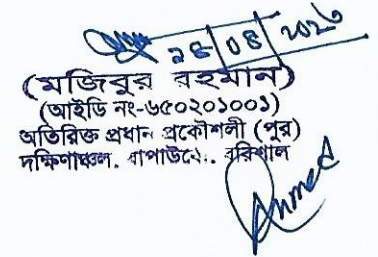 (মজিবুর রহমান)
(আইডি নং-৬৫০২০১০০১)
অতিরিক্ত প্রধান প্রকৌশলী (পুর)
দক্ষিণাঞ্চল, বাপাউবো, বরিশাল